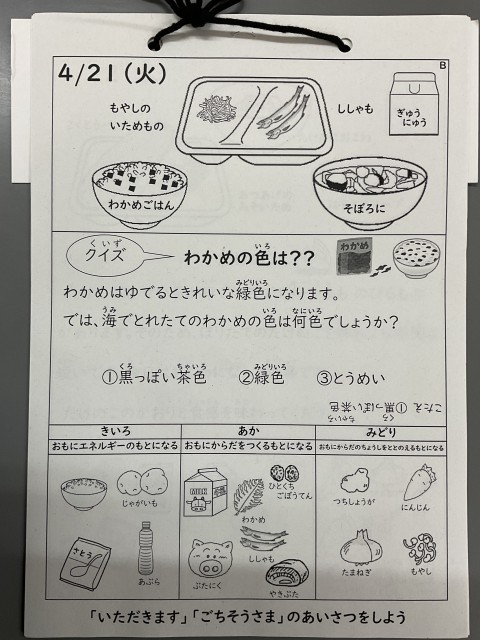 4/21(火)
B
もやしの
いためもの
ししゃも
ぎゅう
にゅう
わかめごはん
そぼろに
くいず
クイズ
いろ
わかめの色は??
わかめ
みどりいろ
わかめはゆでるときれいな緑色になります。
うみ いろ なにいろ
では、海でとれたてのわかめの色は何色でしょうか?
くろ ちゃいろ みどりいろ
①黒っぽい茶色 ②緑色 ③とうめい
こたえ ①黒っぽい茶色
くろ ちゃいろ
きいろ あか みどり
おもにエネルギーのもとになる おもにからだをつくるもとになる おもにからだのちょうしをととのえるもとになる
じゃがいも
さとう
あぶら
MILK
わかめ
ひとくち
ごぼうてん
ぶたにく
ししゃも
やきぶた
つちしょうが
にんじん
たまねぎ
もやし
「いただきます」「ごちそうさま」のあいさつをしよう